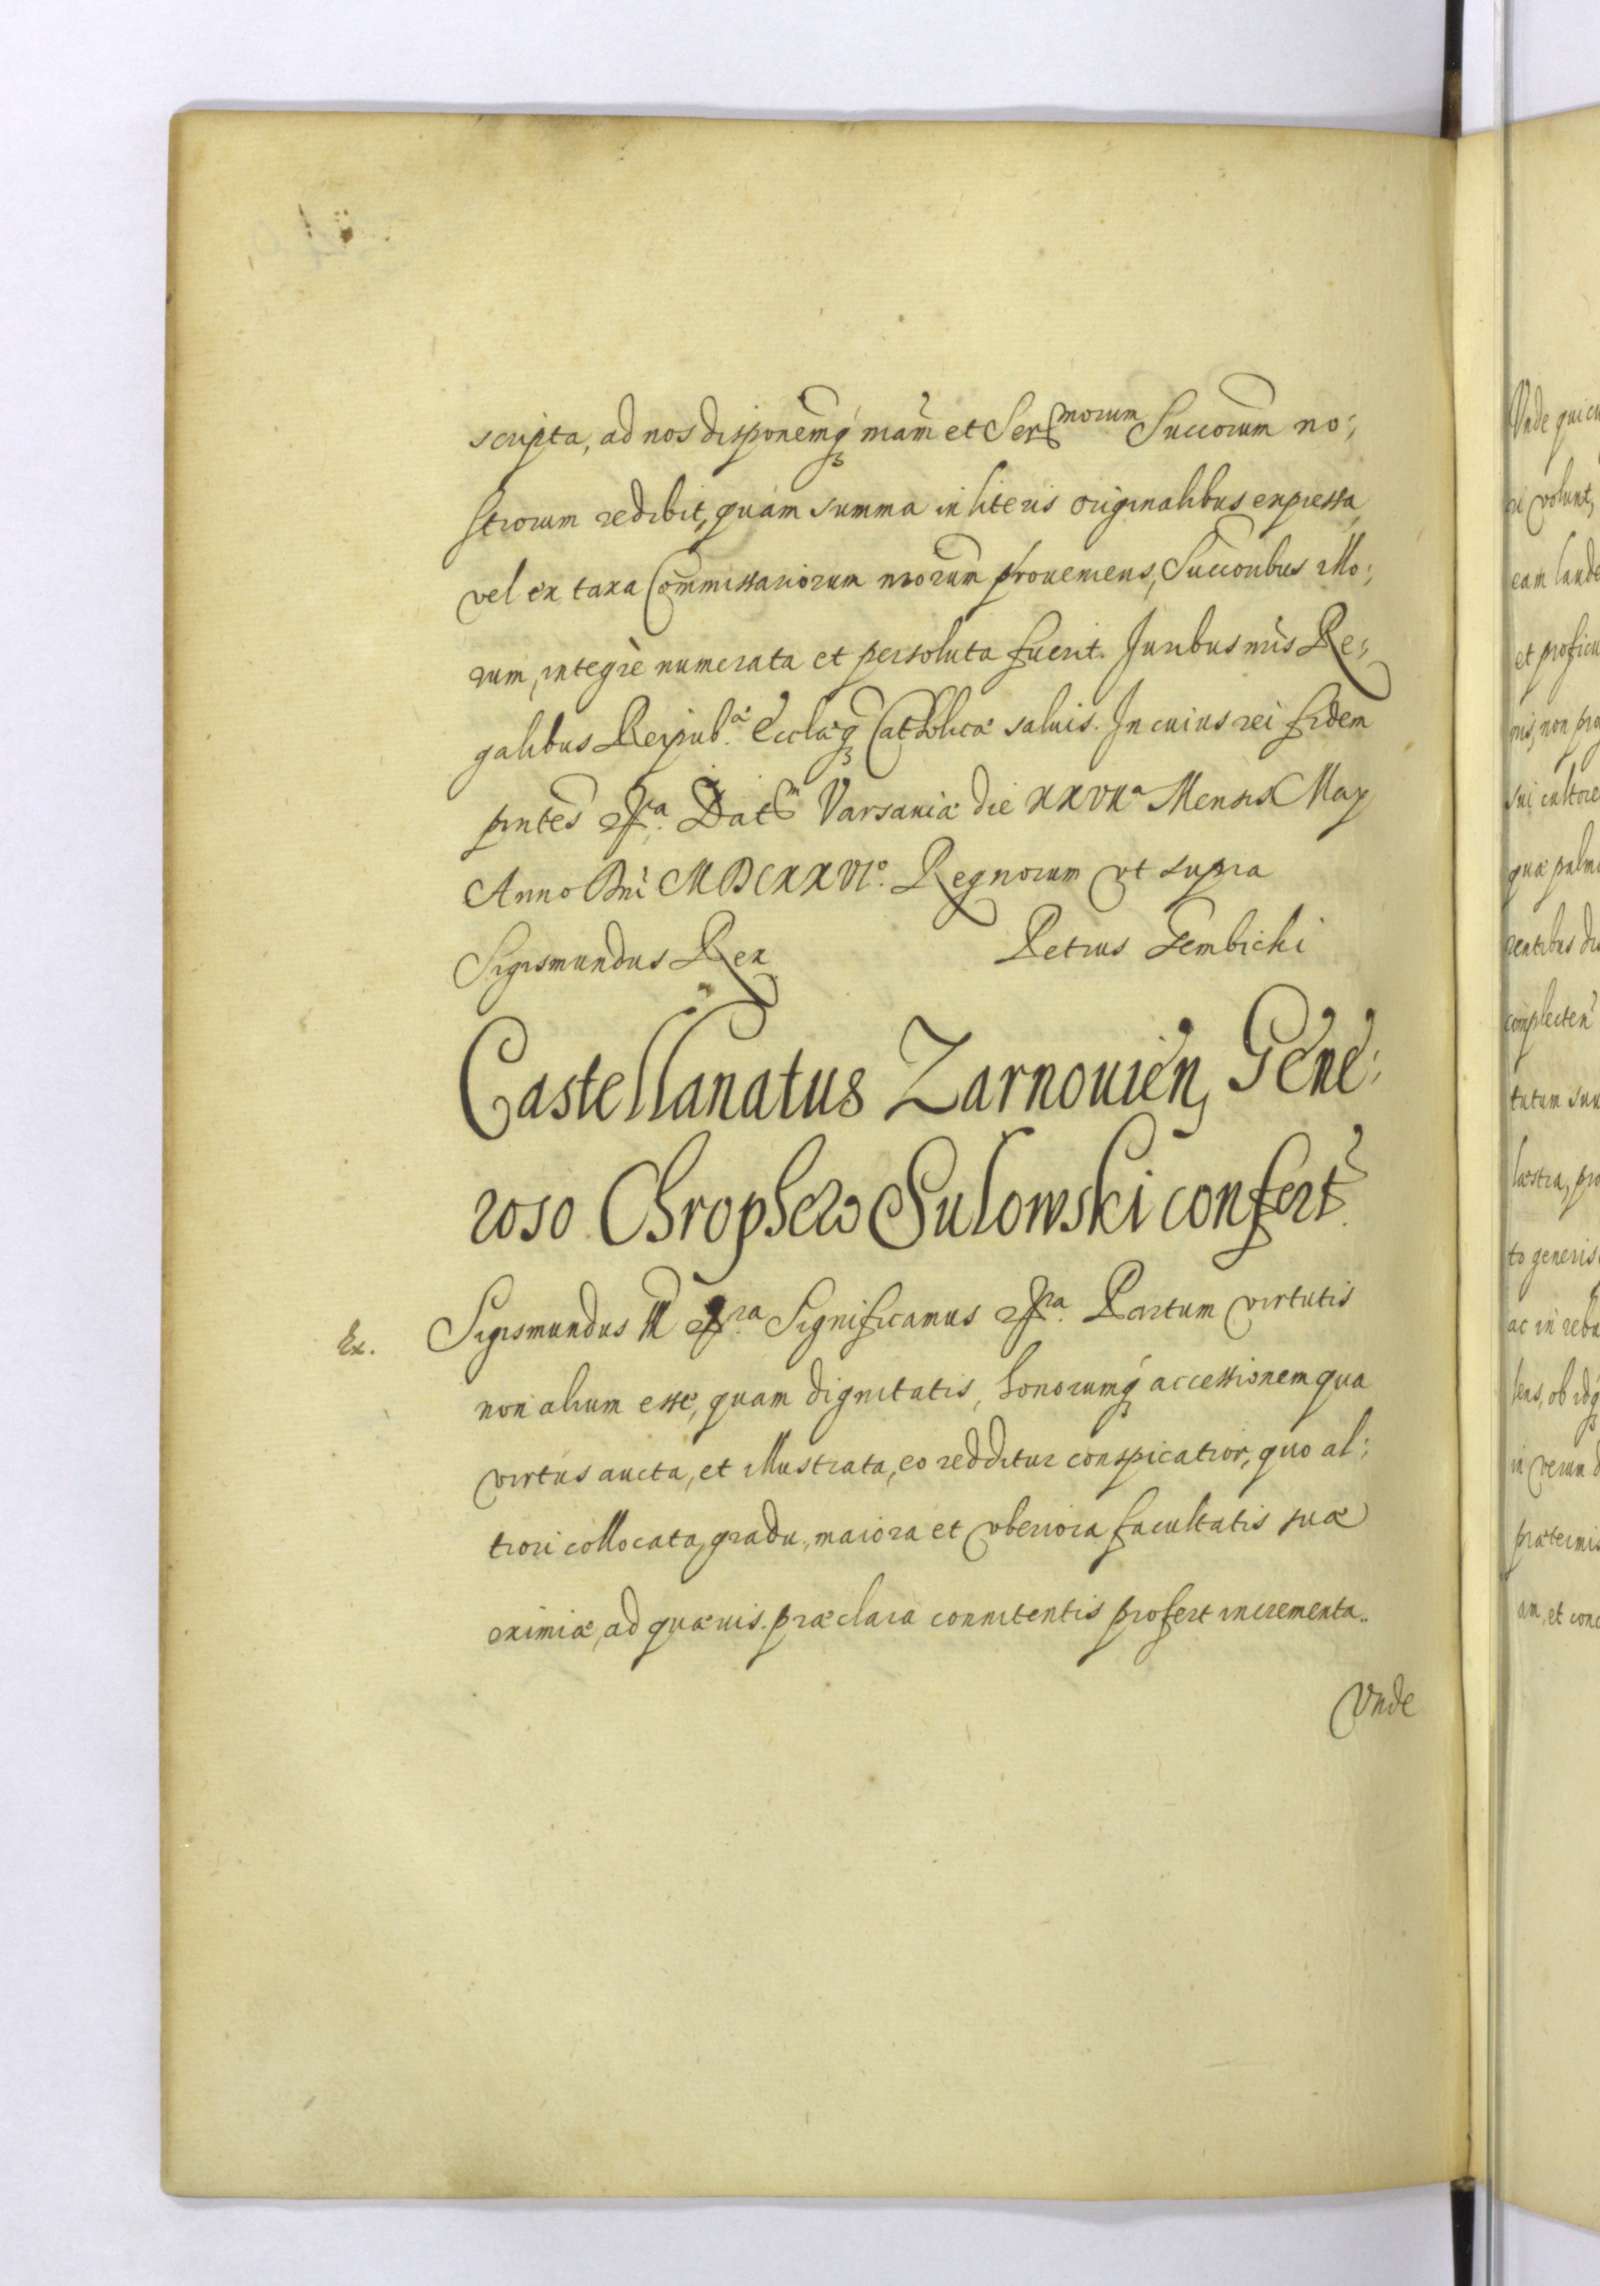 scripta, ad nos disponemq́ nrãm et Ser morum Succorum no:
strorum redibit, quam summa in literis originalibus expressa,
vel ex taxa Com̃missariorum nrorum proueniens, Succoribus illo:
rum, integrè numerata et persoluta fuerit. Juribus nris Re:
galibus Reipub.æ Ecclæq́ Catholicæ saluis. In cuius rei fidem
pntes &ra. Dat Varsauiæ die XXVII a Mensis May
Anno Dni MDCXXVI o. Regnorum vt supra
Sigismundus Rex
Petrus Gembicki
Castellanatus Zarnouien, Gene:
roso Chrophero Sulowski confert.
Ex.
Sigismundus III &ra Significamus &ra. Partum virtutis
non alium esse, quam dignitatis, honorumq́ accessionem qua
virtus aucta, et illustrata, eo redditur conspicatior, quo al:
tiori collocata gradu, maiora et vberiora facultatis suæ
eximiæ, ad quæuis præclara connitentis profert incrementa.
Vnde
Vnde
ri volunt,
eam laude
et
nis, non
sui cultore
quæ
rentibus
complecten
tutum
læstra, pro
to generis
ac in rebu
ob idq́
in verum
præter
am, et conc